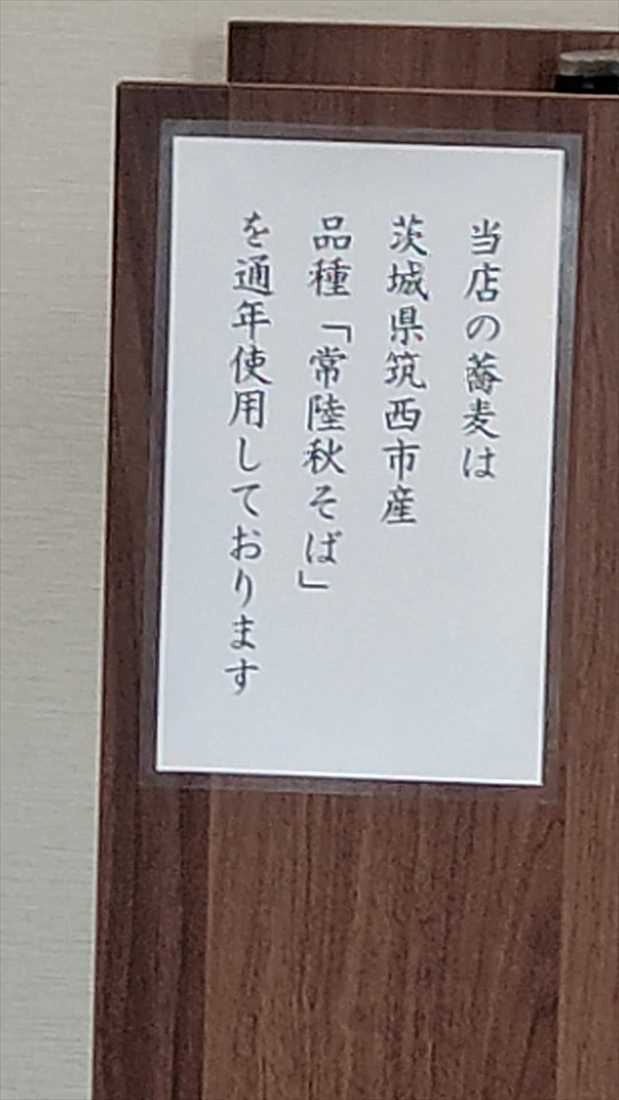 当店の蕎麦は
茨城県筑西市産
品種「常陸秋そば」
を通年使用しております